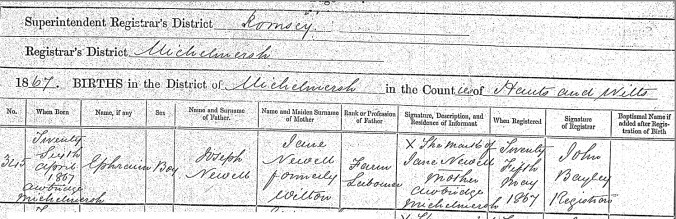 Superintendent Registrar's District Romsey
Registrar's District Michelmersh
1867. BIRTHS in the District of Michelmersh in the Counties of Hants and Wilts
No. When Born Name, if any Sex Name and Surname of Father. Name and Maiden Surname of Mother Rank or Profession of Father Signature, Description, and Residence of Informant When Registered Signature of Registrar Baptismal Name if added after Registration of Birth
345 Twenty Sixth April 1867 Awbridge Michelmersh Ephraim Boy Joseph Newell Jane Newell formerly Wilton Farm Labourer X The mark of Jane Newell Mother Awbridge Michelmersh Twenty Fifth May 1867 John Bayley Registrar